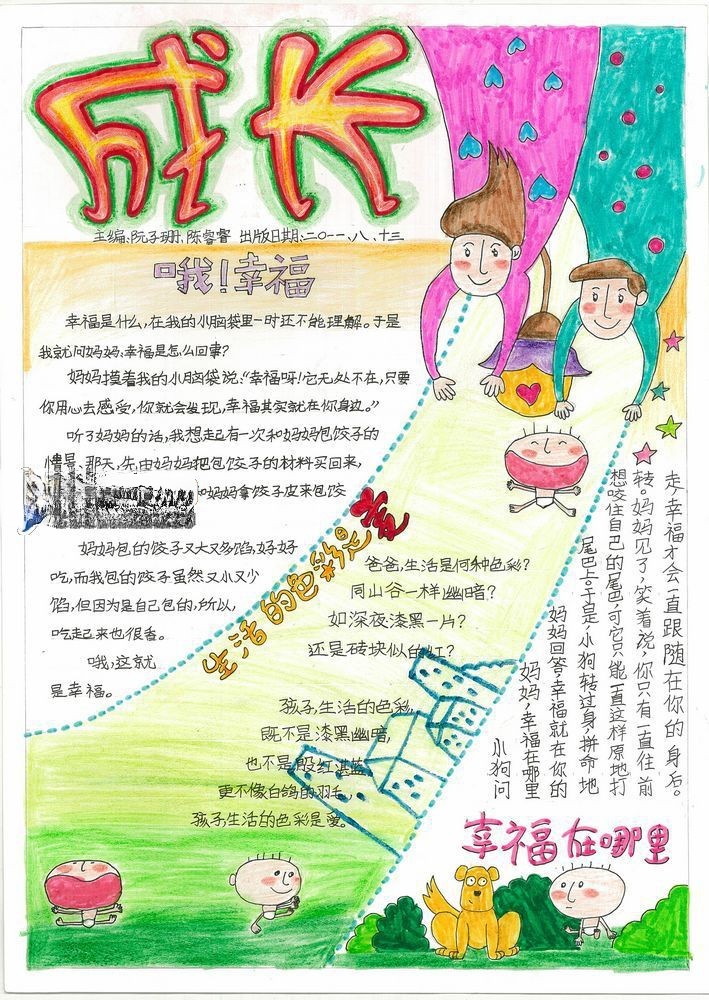 成长
主编:阮子珊、陈睿睿 出版日期:二〇一一、八、十三
哦!幸福
幸福是什么,在我的小脑袋里一时还不能理解。于是
我就问妈妈:幸福是怎么回事?
妈妈摸着我的小脑袋说:“幸福呀!它无处不在,只要
你用心去感受,你就会发现,幸福其实就在你身边。”
听了妈妈的话,我想起有一次和妈妈包饺子的
情景。那天,先由妈妈把包饺子的材料买回来,
妈妈拿饺子皮来包饺
妈妈包的饺子又大又多馅,好好
吃,而我包的饺子虽然又小又少
馅,但因为是自己包的,所以,
吃起来也很香。
哦,这就
是幸福。
生活的色彩是爱
爸爸,生活是何种色彩?
同山谷一样幽暗?
如深夜漆黑一片?
还是砖块似的红?
孩子,生活的色彩,
既不是漆黑幽暗,
也不是殷红湛蓝,
更不像白鸽的羽毛,
孩子,生活的色彩是爱。
幸福在哪里
小狗问
妈妈,幸福在哪里
妈妈回答:幸福就在你的
尾巴上。于是,小狗转过身,拼命地
想咬住自己的尾巴,可它只能一直这样原地打
转。妈妈见了,笑着说:你只有一直往前
走,幸福才会一直跟随在你的身后。